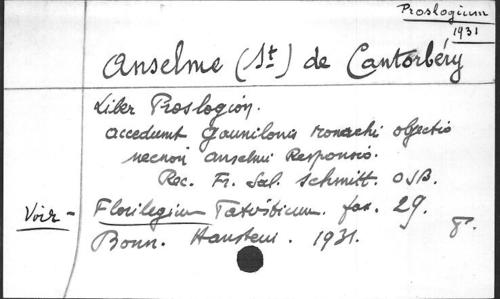 Proslogium
1931
Anselme (St) de Cantorbéry
Liber Proslogion.
accedunt Gaunilonis monachi objectio
necnon Anselmi Responsio.
Rec. Fr. Sal. Schmitt. OSB.
Voir - Florilegium Patristicum. fas. 29.
Bonn. Hanstein. 1931. 8°.